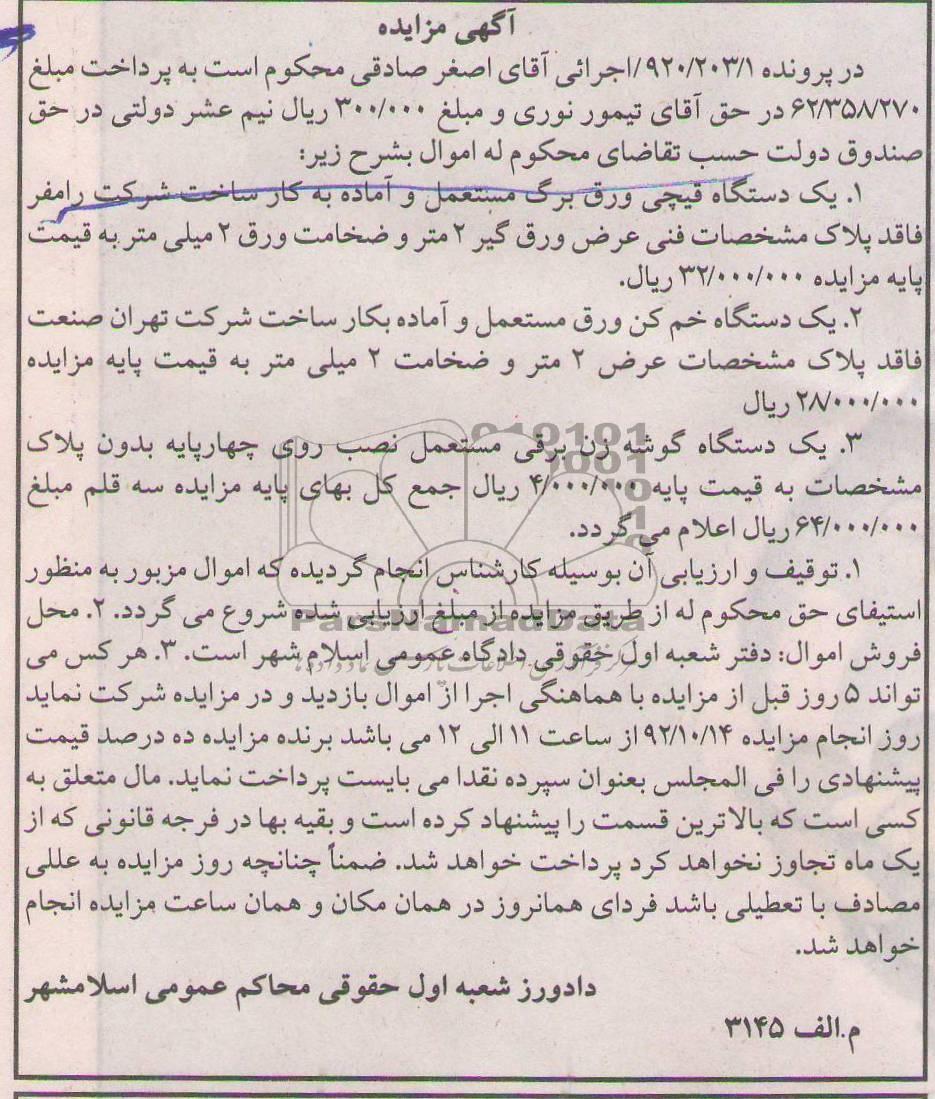 آگهی مزایده
در پرونده ۹۲۰/۲۰۳/۱/اجرائی آقای اصغر صادقی محکوم است به پرداخت مبلغ
۶۲/۳۵۸/۲۷۰ در حق آقای تیمور نوری و مبلغ ۳۰۰/۰۰۰ ریال نیم عشر دولتی در حق
صندوق دولت حسب تقاضای محکوم له اموال بشرح زیر:
۱. یک دستگاه قیچی ورق برگ مستعمل و آماده به کار ساخت شرکت رامفر
فاقد پلاک مشخصات فنی عرض ورق گیر ۲ متر و ضخامت ورق ۲ میلی متر به قیمت
پایه مزایده ۳۲/۰۰۰/۰۰۰ ریال.
۲. یک دستگاه خم کن ورق مستعمل و آماده بکار ساخت شرکت تهران صنعت
فاقد پلاک مشخصات عرض ۲ متر و ضخامت ۲ میلی متر به قیمت پایه مزایده
۲۸/۰۰۰/۰۰۰ ریال
۳. یک دستگاه گوشه زن برقی مستعمل نصب روی چهارپایه بدون پلاک
مشخصات به قیمت پایه ۴/۰۰۰/۰۰۰ ریال جمع کل بهای پایه مزایده سه قلم مبلغ
۶۴/۰۰۰/۰۰۰ ریال اعلام می گردد.
۱. توقیف و ارزیابی آن بوسیله کارشناس انجام گردیده که اموال مزبور به منظور
استیفای حق محکوم له از طریق مزایده از مبلغ ارزیابی شده شروع می گردد. ۲. محل
ParsNamadData
فروش اموال: دفتر شعبه اول حقوقی دادگاه عمومی اسلام شهر است. ۳. هر کس می
تواند ۵ روز قبل از مزایده با هماهنگی اجرا از اموال بازدید و در مزایده شرکت نماید
روز انجام مزایده ۹۲/۱۰/۱۴ از ساعت ۱۱ الی ۱۲ می باشد برنده مزایده ده درصد قیمت
پیشنهادی را فی المجلس بعنوان سپرده نقدا می بایست پرداخت نماید. مال متعلق به
کسی است که بالاترین قسمت را پیشنهاد کرده است و بقیه بها در فرجه قانونی که از
یک ماه تجاوز نخواهد کرد پرداخت خواهد شد. ضمناً چنانچه روز مزایده به عللی
مصادف با تعطیلی باشد فردای همانروز در همان مکان و همان ساعت مزایده انجام
خواهد شد.
دادورز شعبه اول حقوقی محاکم عمومی اسلامشهر
م.الف ۳۱۴۵